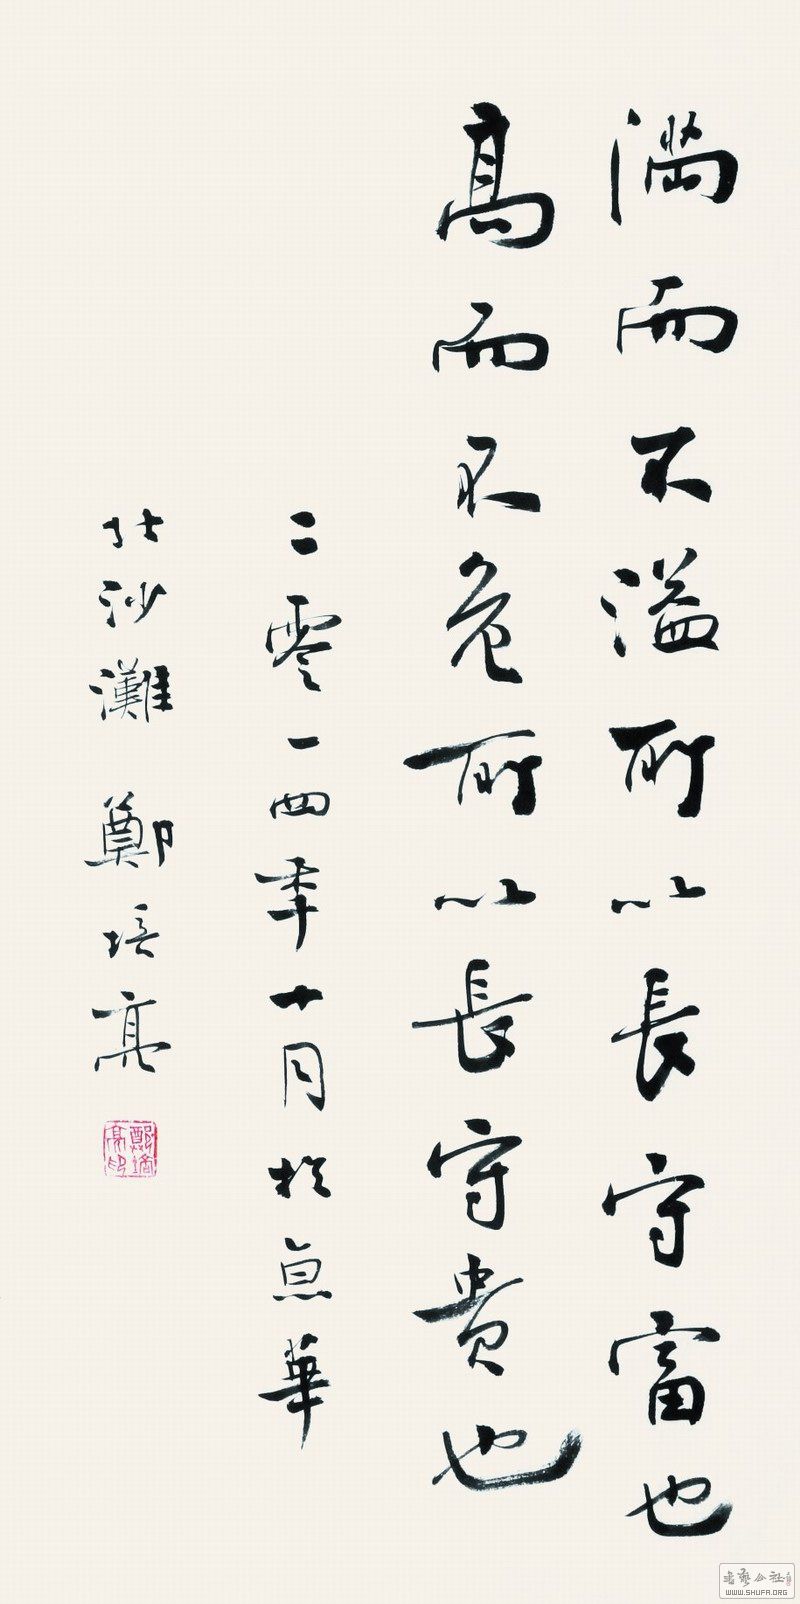 满而不溢所以長守富也
高而不危所以長守貴也
二零一四年十月於京華
北沙灘 鄭培亮
鄭培亮印
書藝公社
WWW.SHUFA.ORG